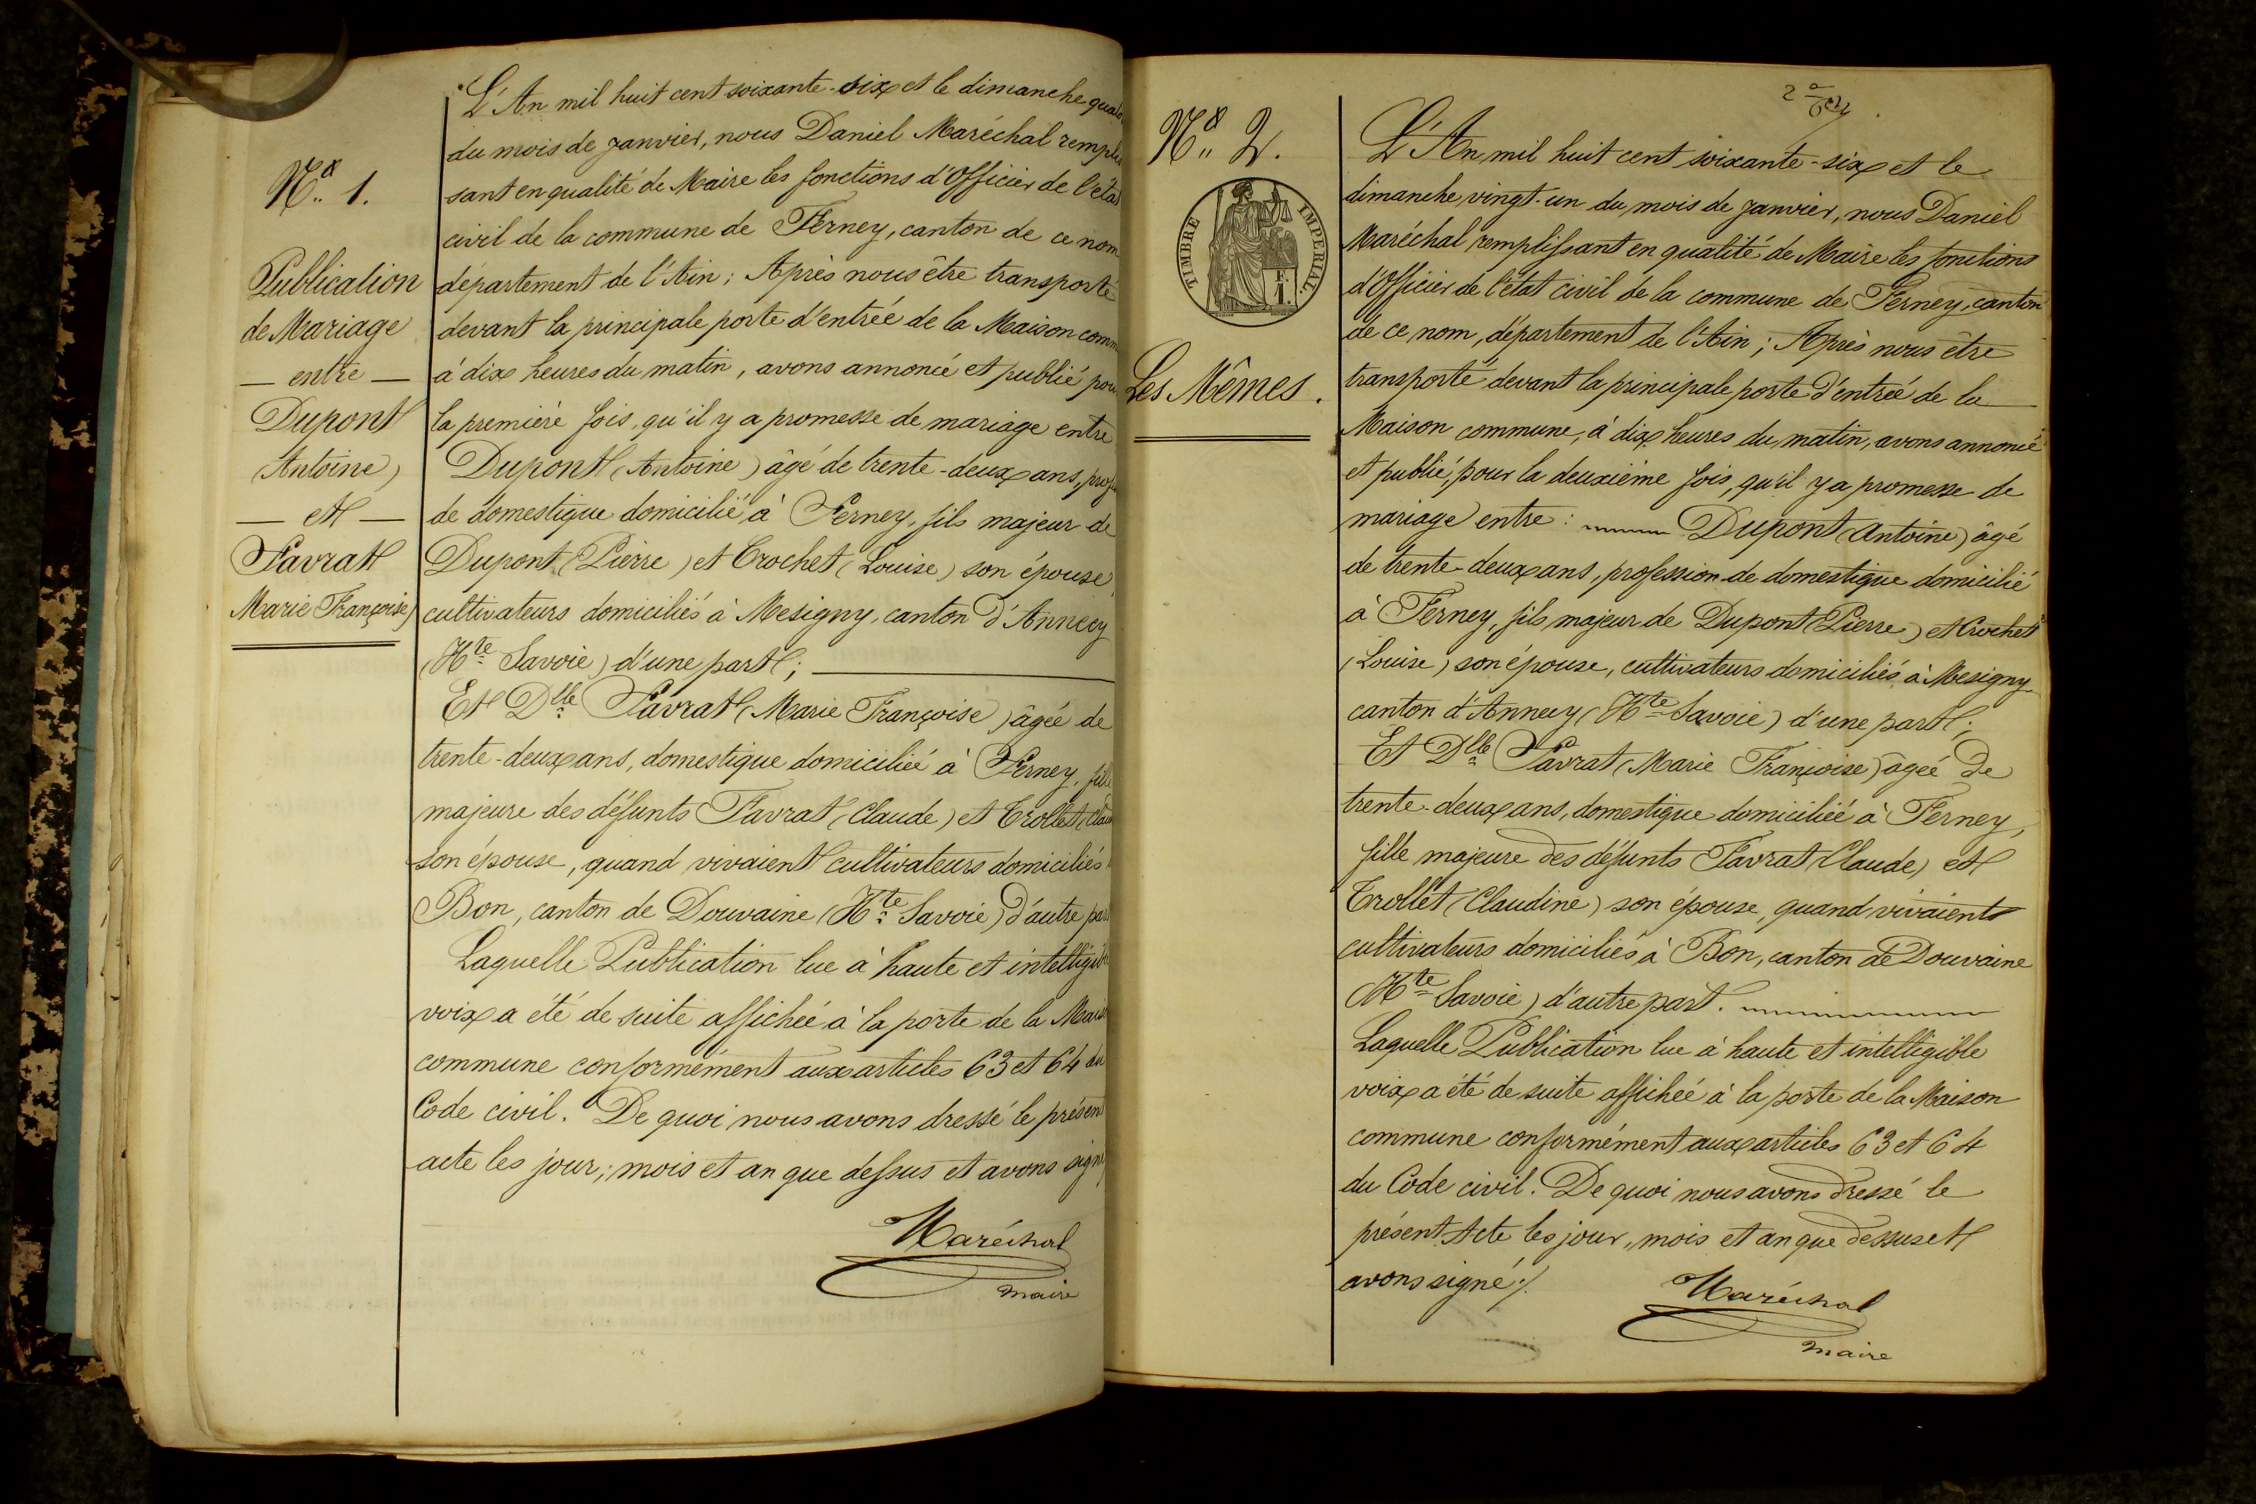 N° 1.
Publication
de Mariage
— entre —
Dupont
(Antoine)
— et —
Favrat
Marie Françoise)
L'An mil huit cent soixante-six et le dimanche
du mois de janvier, nous Daniel Maréchal remplis
sant en qualité de Maire les fonctions d'Officier de l'état
civil de la commune de Ferney, canton de ce nom
département de l'Ain; Après nous être transporté
devant la principale porte d'entrée de la Maison comm
à dix heures du matin, avons annoncé et publié pour
la première fois, qu'il y a promesse de mariage entre
Dupont (Antoine) âgé de trente-deux ans, prof
de domestique domicilié à Ferney, fils majeur de
Dupont (Pierre) et Crochet (Louise) son épouse,
cultivateurs domiciliés à Mesigny, canton d'Annecy
(Hte Savoie) d'une part;
Et Dlle Favrat (Marie Françoise) âgée de
trente-deux ans, domestique domiciliée à Ferney, fille
majeure des défunts Favrat (Claude) et Trollet (Clau
son épouse, quand vivaient cultivateurs domiciliés
Bon, canton de Douvaine (Hte Savoie) d'autre par
Laquelle Publication lue à haute et intelligib
voix a été de suite affichée à la porte de la Mais
commune conformément aux articles 63 et 64 du
Code civil. De quoi nous avons dressé le présen
acte les jour, mois et an que dessus et avons sign
Maréchal
maire
N° 2.
TIMBRE IMPERIAL
F.
1.
Les Mêmes.
L'An mil huit cent soixante-six et le
dimanche vingt-un du mois de janvier, nous Daniel
Maréchal remplissant en qualité de Maire les fonctions
d'Officier de l'état civil de la commune de Ferney, canton
de ce nom, département de l'Ain; Après nous être
transporté devant la principale porte d'entrée de la
Maison commune, à dix heures du matin, avons annoncé
et publié, pour la deuxième fois, qu'il y a promesse de
mariage entre: Dupont (Antoine) âgé
de trente-deux ans, profession de domestique domicilié
à Ferney, fils majeur de Dupont (Pierre) et Crochet
(Louise) son épouse, cultivateurs domiciliés à Mesigny
canton d'Annecy (Hte Savoie) d'une part;
Et Dlle Favrat (Marie Françoise) âgée de
trente-deux ans, domestique domiciliée à Ferney,
fille majeure des défunts Favrat (Claude) et
Trollet (Claudine) son épouse, quand vivaient
cultivateurs domiciliés à Bon, canton de Douvaine
(Hte Savoie) d'autre part.
Laquelle Publication lue à haute et intelligible
voix a été de suite affichée à la porte de la Maison
commune conformément aux articles 63 et 64
du Code civil. De quoi nous avons dressé le
présent Acte les jour, mois et an que dessus et
avons signé./.
Maréchal
maire